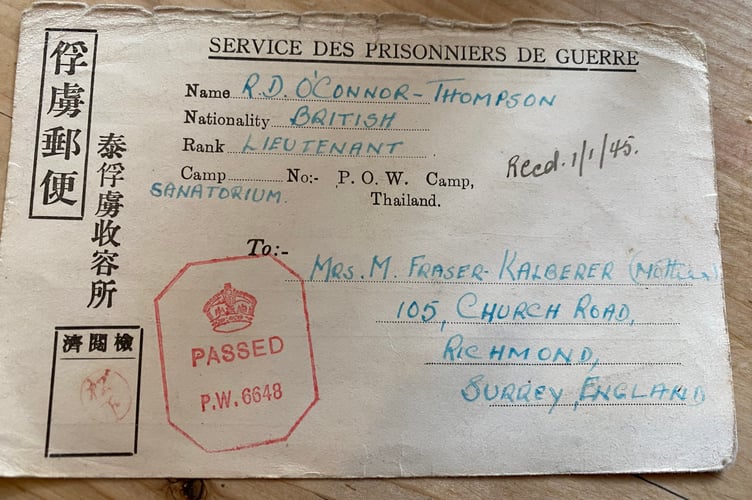 俘虜郵便
泰俘虜收容所
SERVICE DES PRISONNIERS DE GUERRE
Name R.D. O'CONNOR-THOMPSON
Nationality BRITISH
Rank LIEUTENANT
Camp No:- P. O. W. Camp,
SANATORIUM. Thailand.
Recd. 1/1/45.
To:-
MRS. M. FRASER-KALBERER (MOTHER)
105, CHURCH ROAD,
RICHMOND,
SURREY, ENGLAND
PASSED
P.W. 6648
濟閱檢